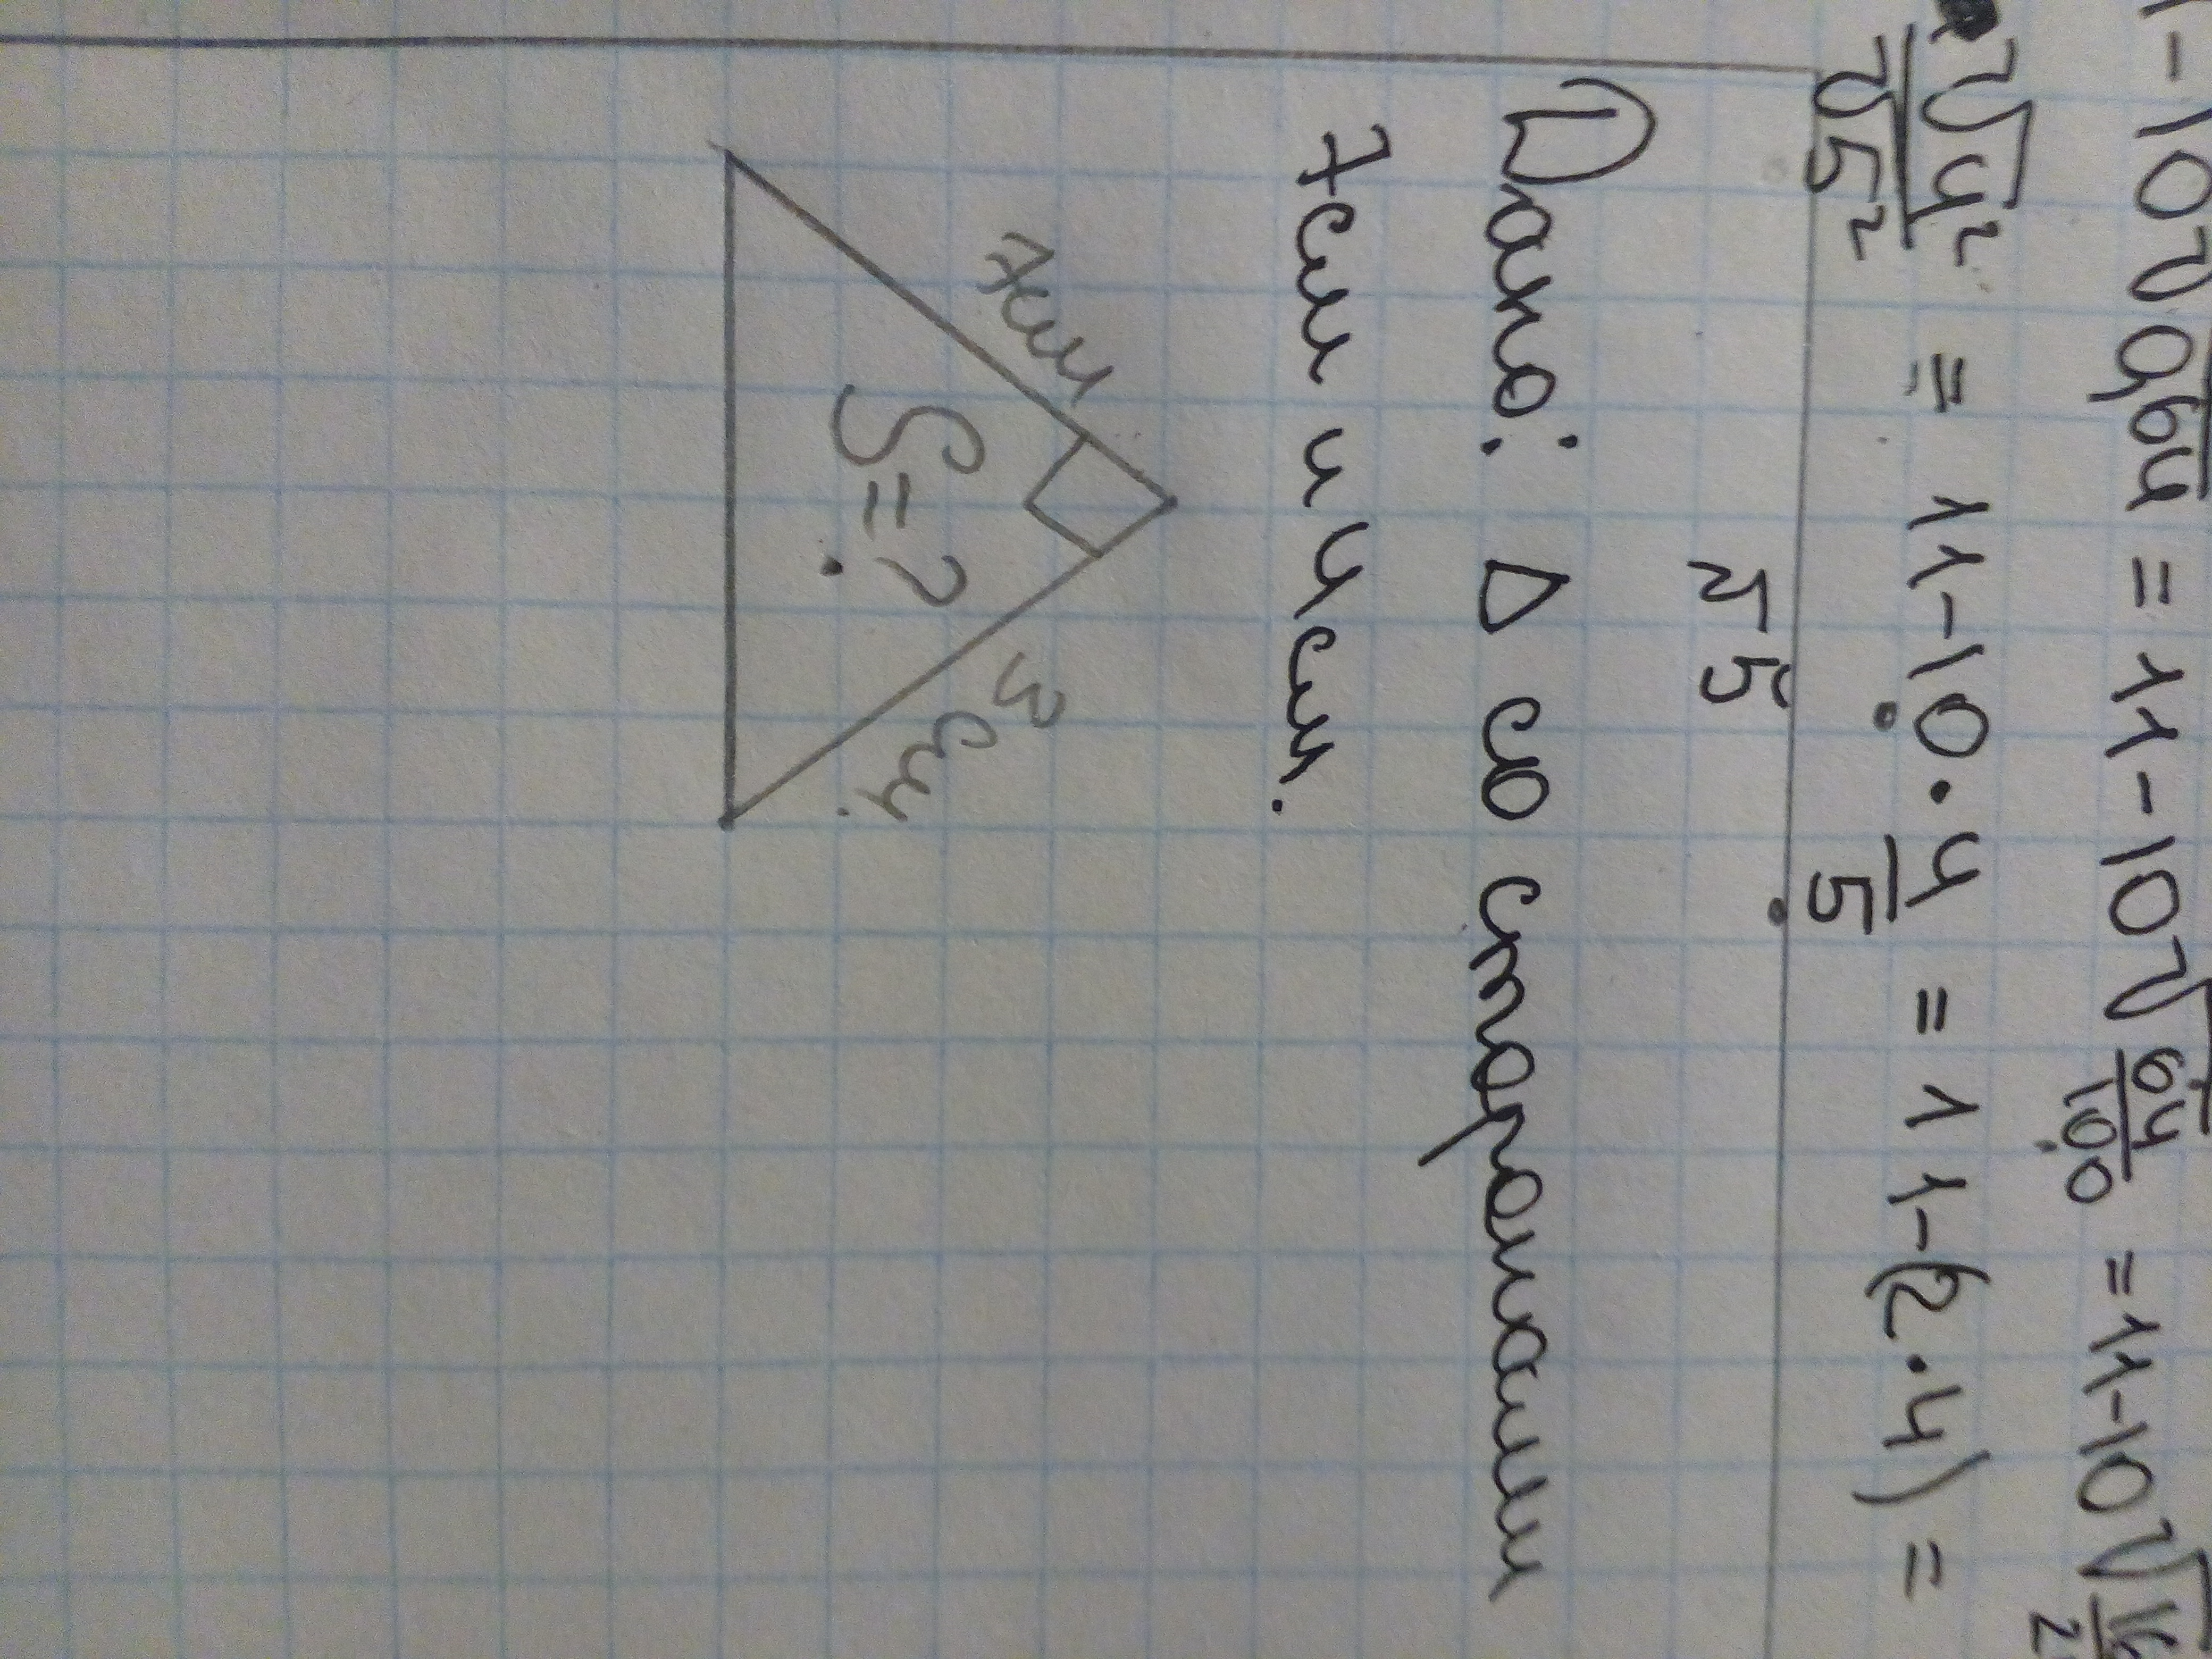 1-10√0,64 = 11-10√64/100 = 11-10√16/2
√4²/√5² = 11-10·4/5 = 11-(2·4) =
√5
Дано: Δ со сторонами
7см и 4см.
7см
3см
S=?